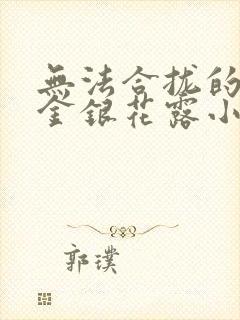 無法合拢的
金銀花露小
郭璞